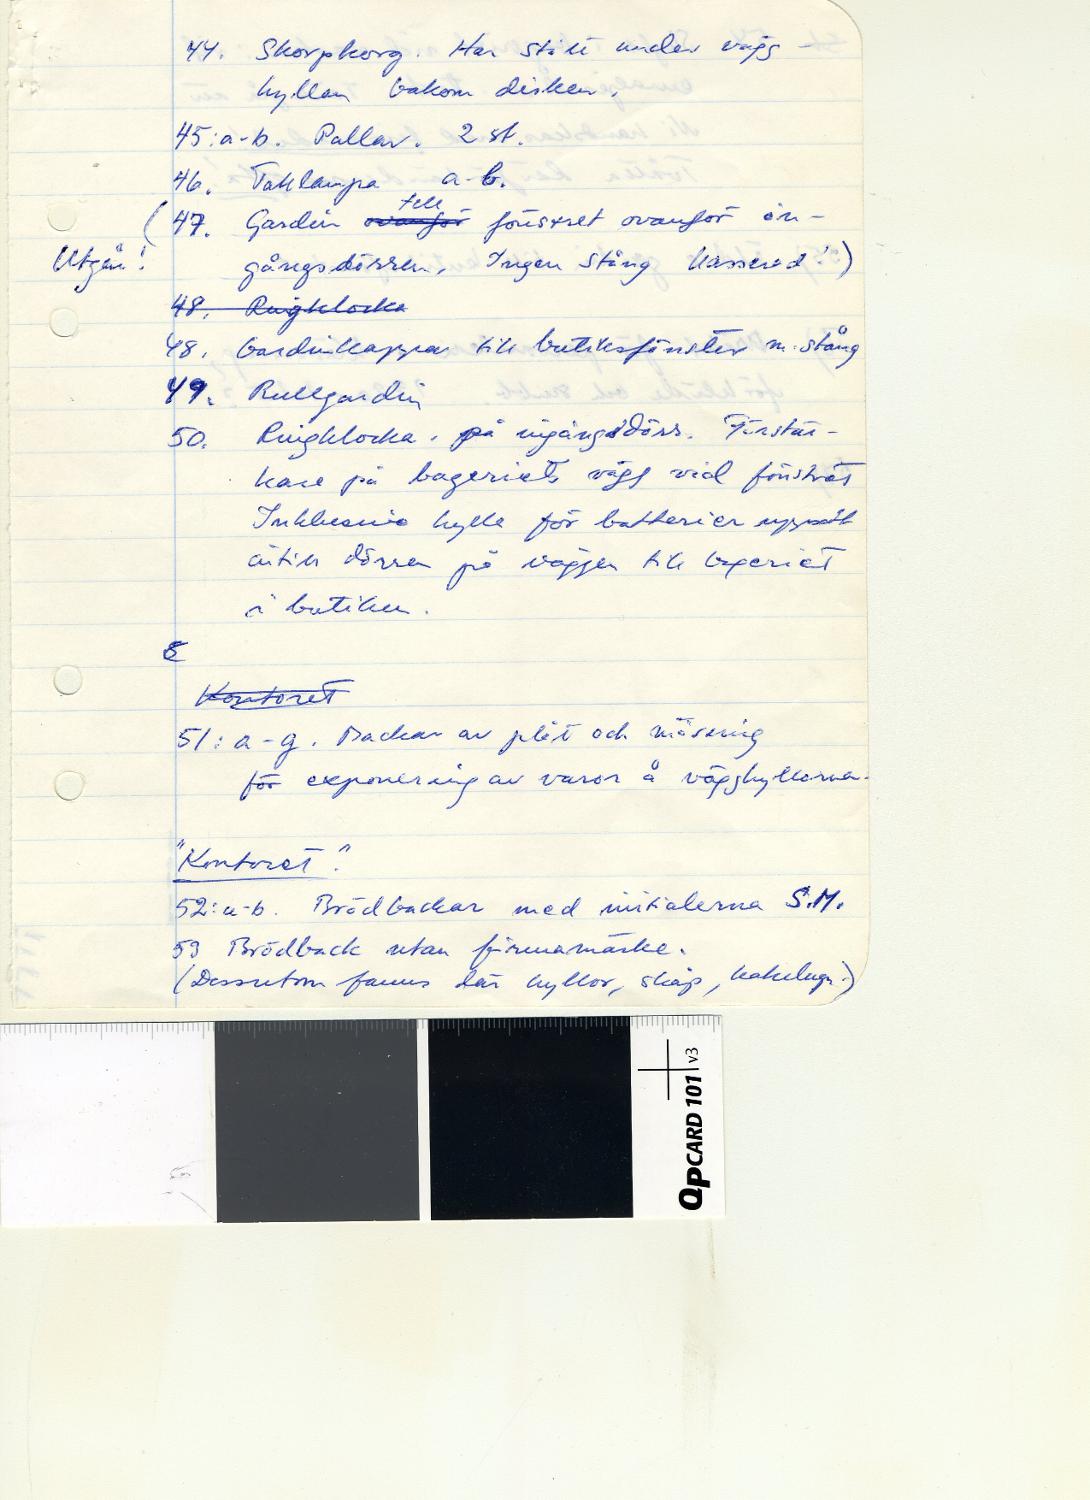 44. Skorpkorg. Har stått under vägg-
hyllan bakom disken.
45:a-b. Pallar. 2 st.
46. Taklampa a-b.
till
(47. Gardin ovanför fönstret ovanför in-
Utgår! gångsdörren. Ingen stång kasserad!)
48. Ringklocka
48. Gardinkappor till butiksfönster m. stång
49. Rullgardin
50. Ringklocka. på ingångsdörr. Förstär-
kare på bageriets vägg vid fönstret
Inklusive hylla för batterier uppsatt
intill dörren på väggen till bageriet
i butiken.
Kontoret
51: a-g. Backar av plåt och mässing
för exponering av varor å vägghyllorna.
"Kontoret".
52:a-b. Brödbackar med initialerna S.M.
53 Brödback utan firmamärke.
(Dessutom fanns där hyllor, skåp, kakelugn.)
QPCARD 101 v3